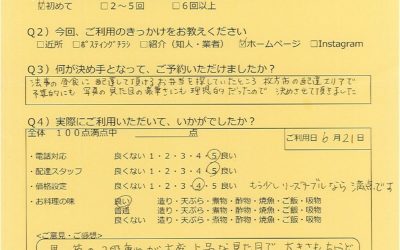 ☑初めて □２～５回 □６回以上
Ｑ２）今回、ご利用のきっかけをお教えください
□近所 □ポスティングチラシ □紹介（知人・業者） ☑ホームページ □Instagram
Ｑ３）何が決め手となって、ご予約いただけましたか？
法事の昼食に配達して頂けるお弁当を探していたところ 枚方店の配達エリアで
予算的にも 写真の見た目の豪華さにも理想的だったので 決めさせて頂きました
Ｑ４）実際にご利用いただいて、いかがでしたか？
全体 １００点満点中 ＿＿＿点
ご利用日 6月21日
・電話対応 良くない１・２・３・４・５良い
・配達スタッフ 良くない１・２・３・４・５良い
・価格設定 良くない１・２・３・４・５良い もう少しリーズナブルなら満点です
・お料理の味 良い 造り・天ぷら・煮物・酢物・焼魚・ご飯・吸物
普通 造り・天ぷら・煮物・酢物・焼魚・ご飯・吸物
良くない 造り・天ぷら・煮物・酢物・焼魚・ご飯・吸物
＜ご意見・ご感想＞